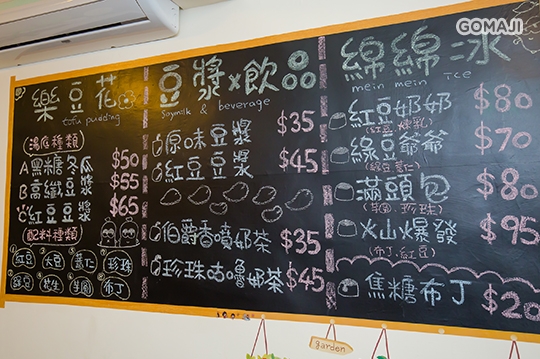 GOMAJI
樂豆花
tofu pudding
(湯底種類)
A黑糖冬瓜 $50
B高纖豆漿 $55
紅豆豆漿 $65
(配料種類)
①紅豆 ②大豆 ③薏仁 ④珍珠
⑤綠豆 ⑥花生 ⑦芋圓 ⑧布丁
豆漿×飲品
Soymilk & beverage
原味豆漿 $35
紅豆豆漿 $45
伯爵香噴奶茶 $35
珍珠咕嚕奶茶 $45
綿綿冰
mein mein Ice
紅豆奶奶 $80
(紅豆.煉乳)
綠豆爺爺 $70
(綠豆.薏仁)
滿頭包 $80
(芋圓.珍珠)
火山爆發 $95
(布丁.紅豆)
焦糖布丁 $20
garden